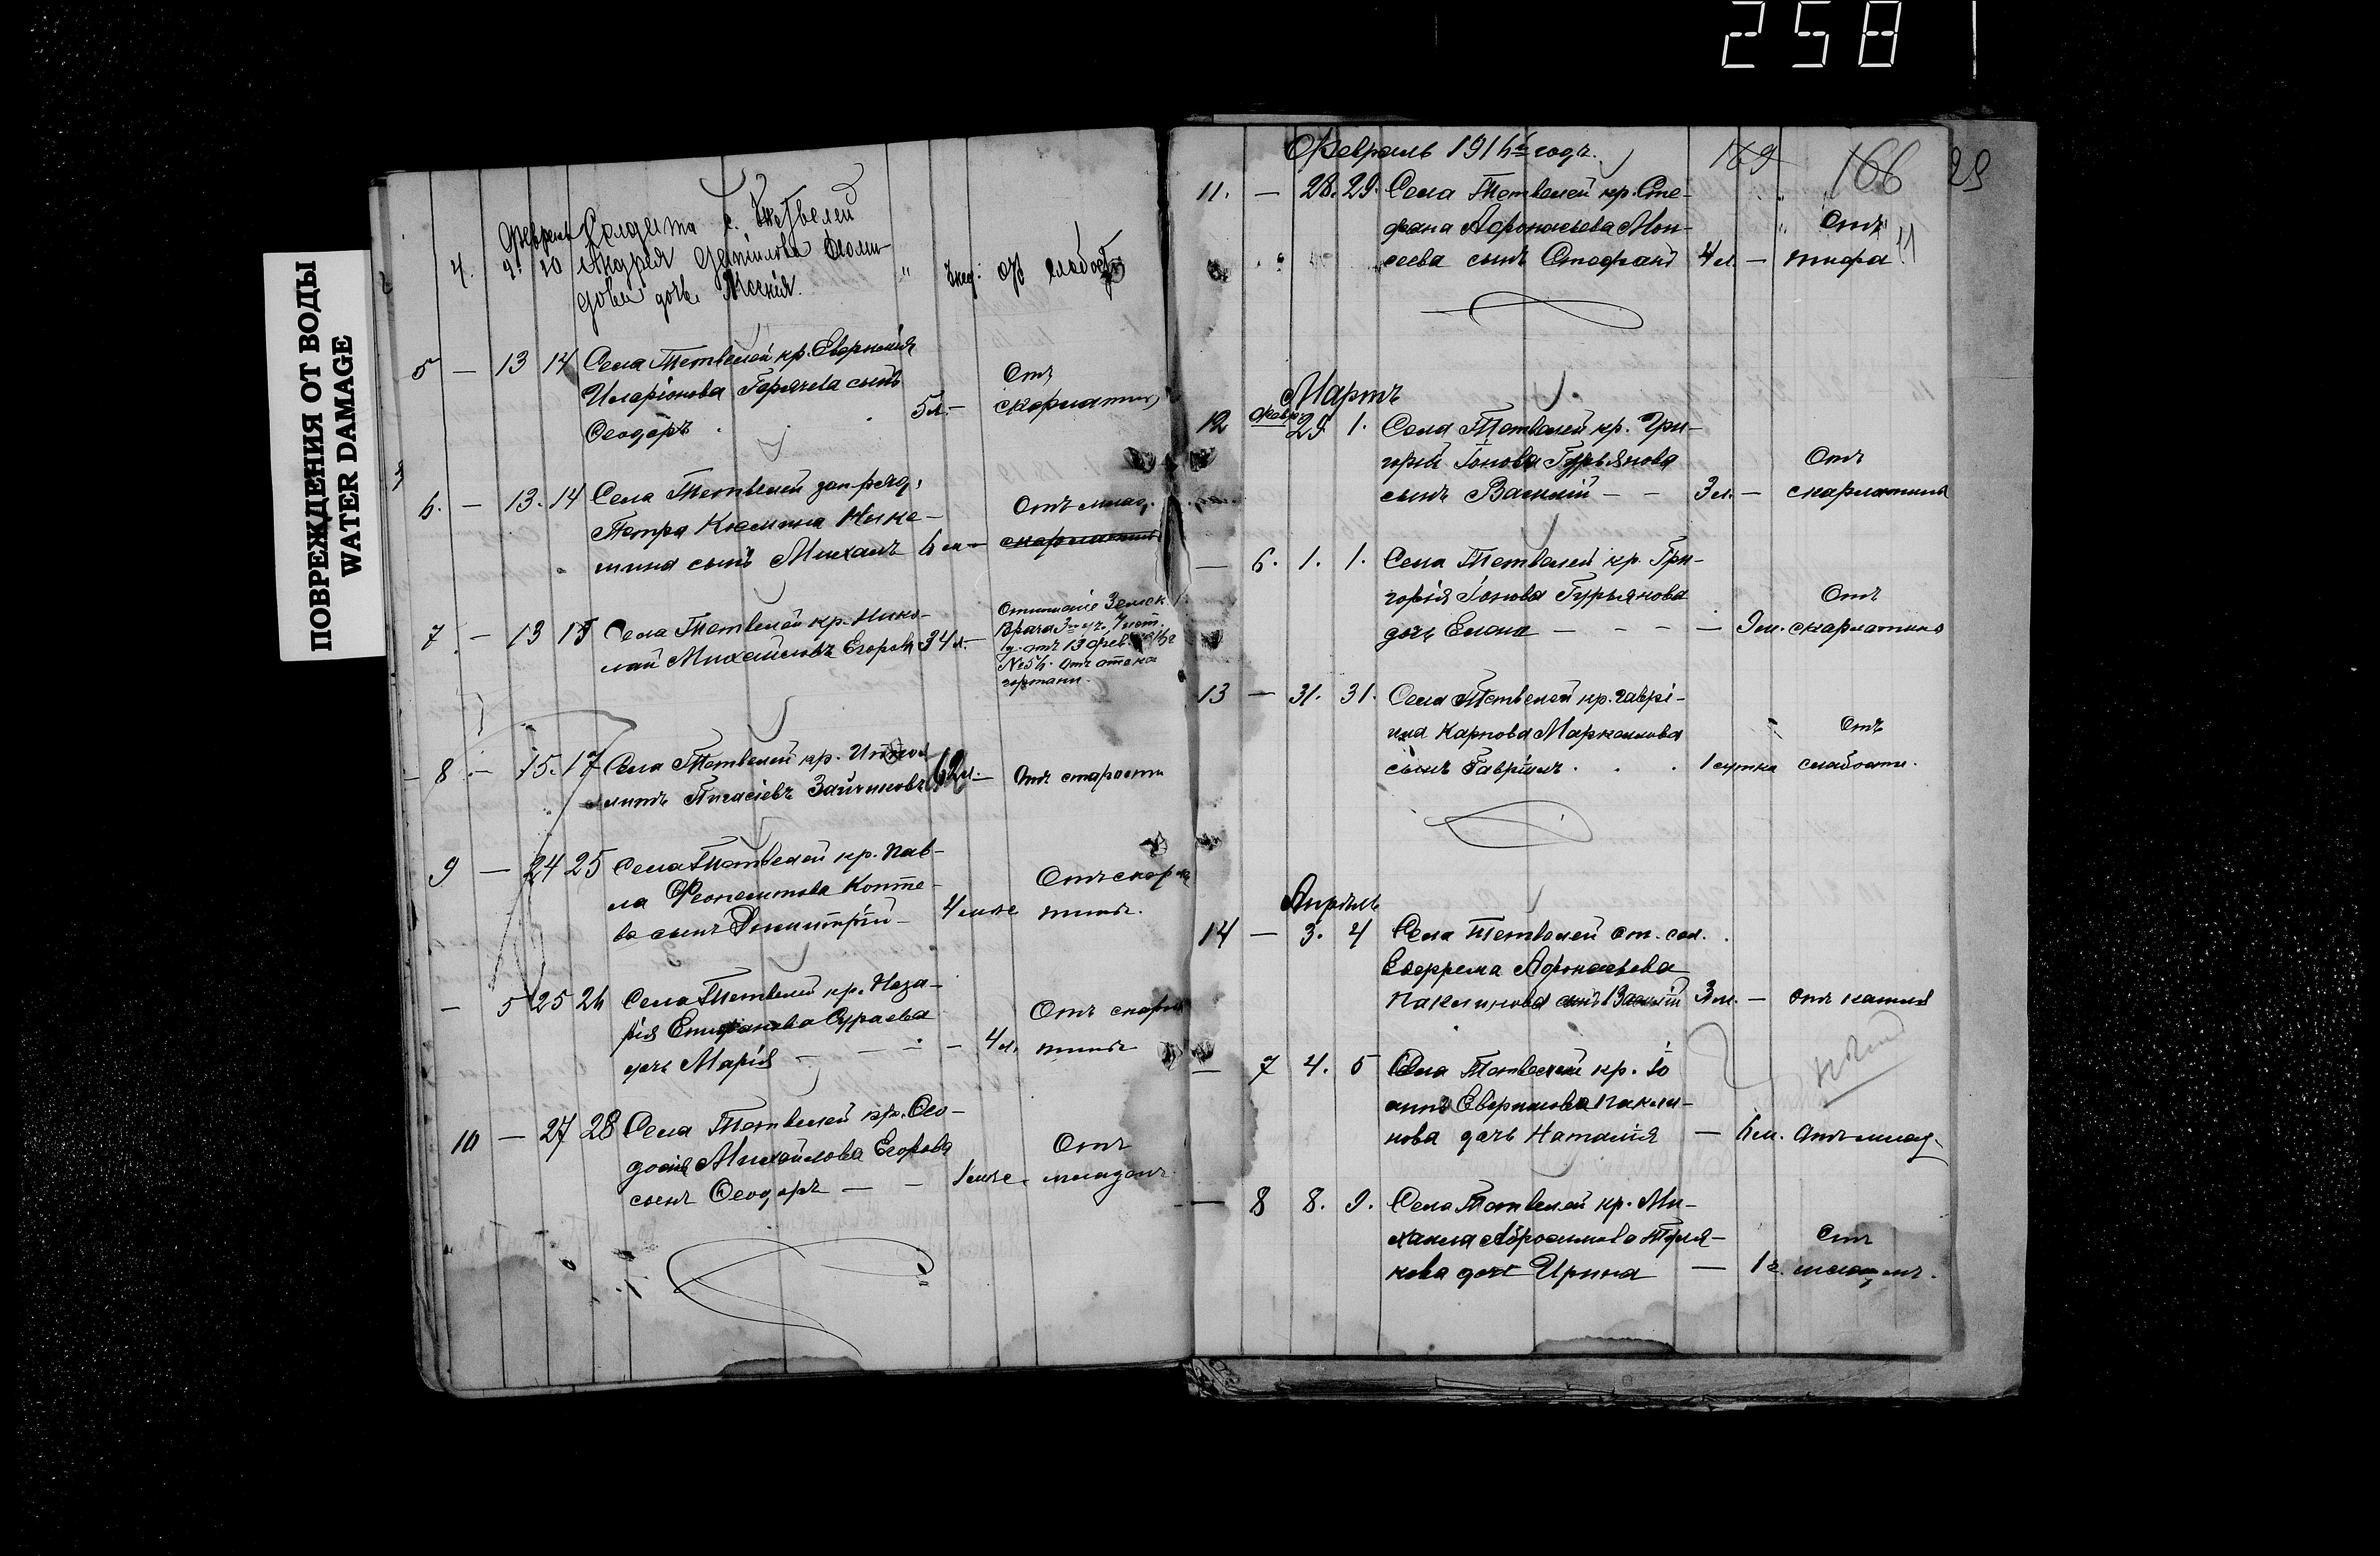 258
ПОВРЕЖДЕНИЯ ОТ ВОДЫ
WATER DAMAGE
Февраль Солдата с.
4. 9. 10 Андрея
дочь Ксенія. отъ слабости
5 — 13 14 Села Тетвелей кр. Евфимія
Иларіонова Горячева сынъ
Ѳеодоръ 5 л. — Отъ скарлатины
6. — 13. 14 Села Тетвелей зап. ряд.
Петра Кузмина
сынъ Михаилъ 6 м — Отъ млад.
скарлатины
7. — 13 15 Села Тетвелей кр. Нико-
лай Михайловъ Егоровъ 34 л. —
Отношеніе Земск.
Врача 3го уч.
отъ 13 фев.
№ 56. отъ отека
гортани.
8. — 15. 17 Села Тетвелей кр. Иппо-
литъ Зайчиковъ — Отъ старости
9 — 24 25 Села Тетвелей кр. Пав-
ла Ѳеопемптова Копте-
ва сынъ Димитрій — 4 мѣс Отъ скарла
тины.
— 5 25 26 Села Тетвелей кр. Наза-
рія Епифанова Сураева
дочь Марія — — — 4 л. Отъ скарла
тины
10 — 27 28 Села Тетвелей кр. Ѳео-
досія Михайлова Егорова
сынъ Ѳеодоръ — — 1 мѣс. Отъ
младен.
Февраль 1916й годъ.
169 166 29
11. — 28. 29. Села Тетвелей кр. Сте-
фана Афонасьева Мои-
сеева сынъ Стефанъ 4 л. — Отъ
тифа 11
Мартъ
12 Февр. 29 1. Села Тетвелей кр. Гри-
горій Іонова Гурьянова
сынъ Василій — — 3 л. — Отъ
скарлатины
— 6. 1. 1. Села Тетвелей кр. Гри-
горія Іонова Гурьянова
дочь Елена — — — — 9 м. Отъ
скарлатины
13 — 31. 31. Села Тетвелей кр. Гаврі-
ила Карпова Маркелова
сынъ Гавріилъ . . . 1 сутки Отъ
слабости.
Апрѣль
14 — 3. 4 Села Тетвелей от. сол.
Евфрема Афонасьева
Паклинова сынъ Василій 3 м. — Отъ кашля
— 7 4. 5 Села Тетвелей кр. Іо
анна Паклин-
нова дочь Наталія — 6 м. Отъ млад.
— 8 8. 9. Села Тетвелей кр. Ми-
хаила Абросимова
кова дочь Ирина — 1 г. Отъ
младен.